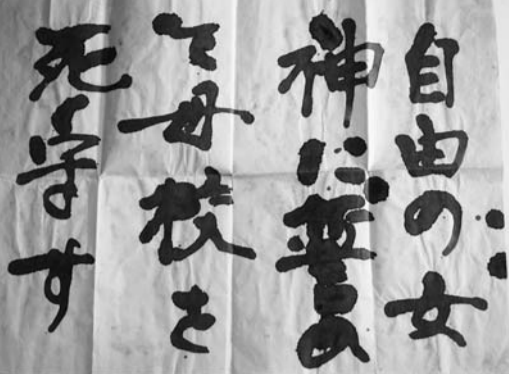 自由の女
神に誓つ
て母校を
死守す